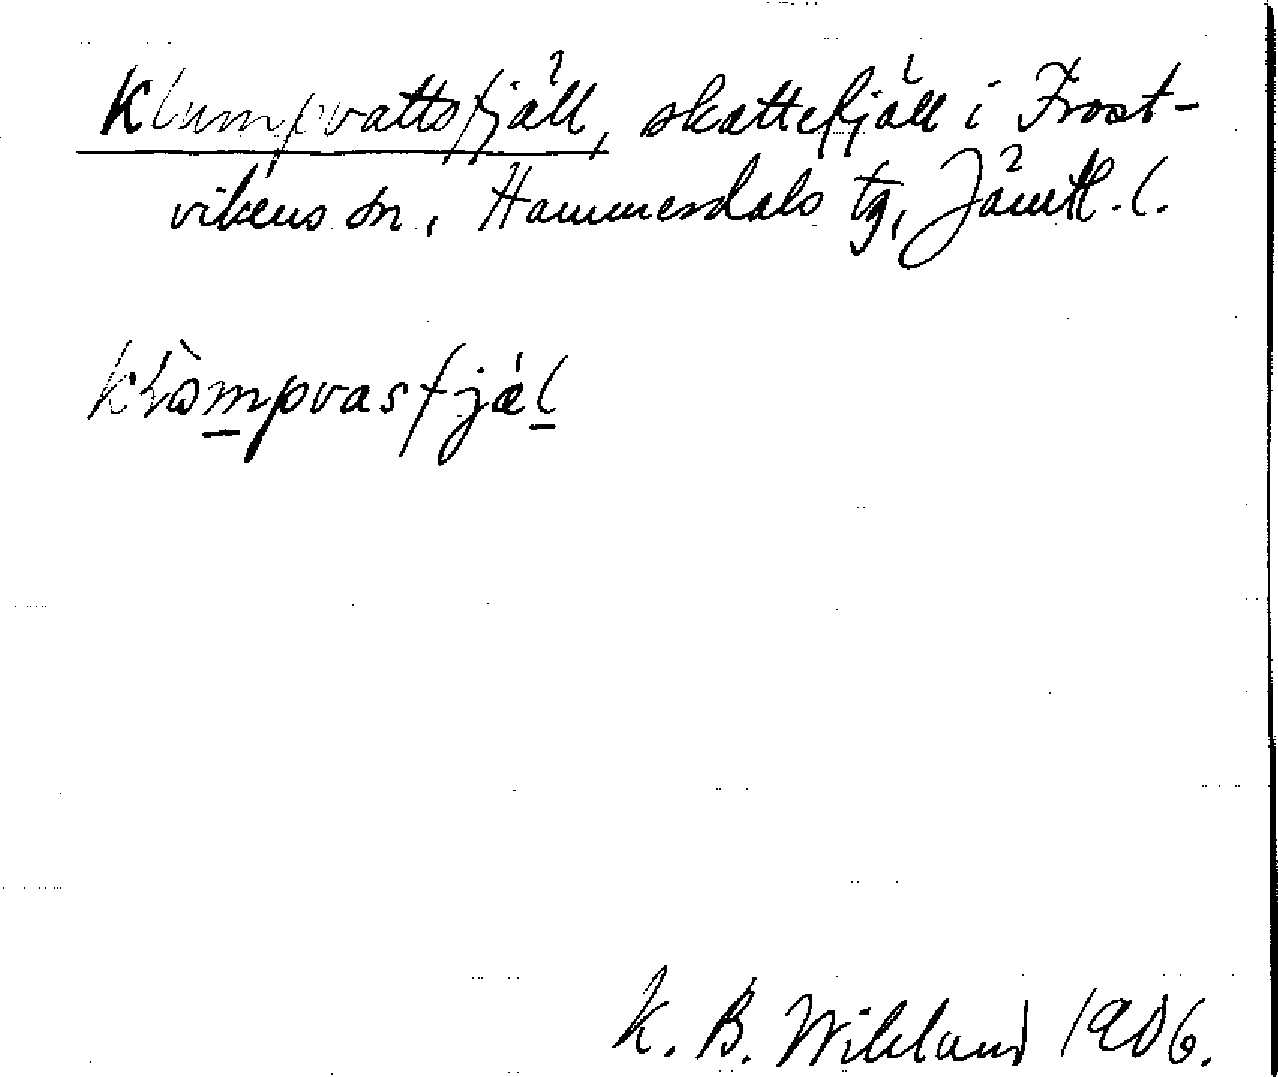 Klumpvattsfjäll, skattefjäll i Frost-
vikens sn, Hammerdals tg, Jämtl. l.
klòmpvasfjæ̀l
K. B. Wiklund 1906.